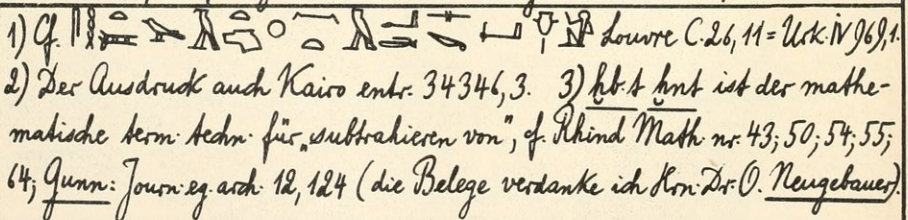 1) Cf. Louvre C. 26, 11 = Urk. IV 969, 1.
2) Der Ausdruck auch Kairo entr. 34346, 3. 3) ḫb·t ḫnt ist der mathe-
matische term. techn. für „subtrahieren von", cf. Rhind Math. nr. 43; 50; 54; 55;
64; Gunn: Journ. eg. arch. 12, 124 (die Belege verdanke ich Hrn. Dr. O. Neugebauer).